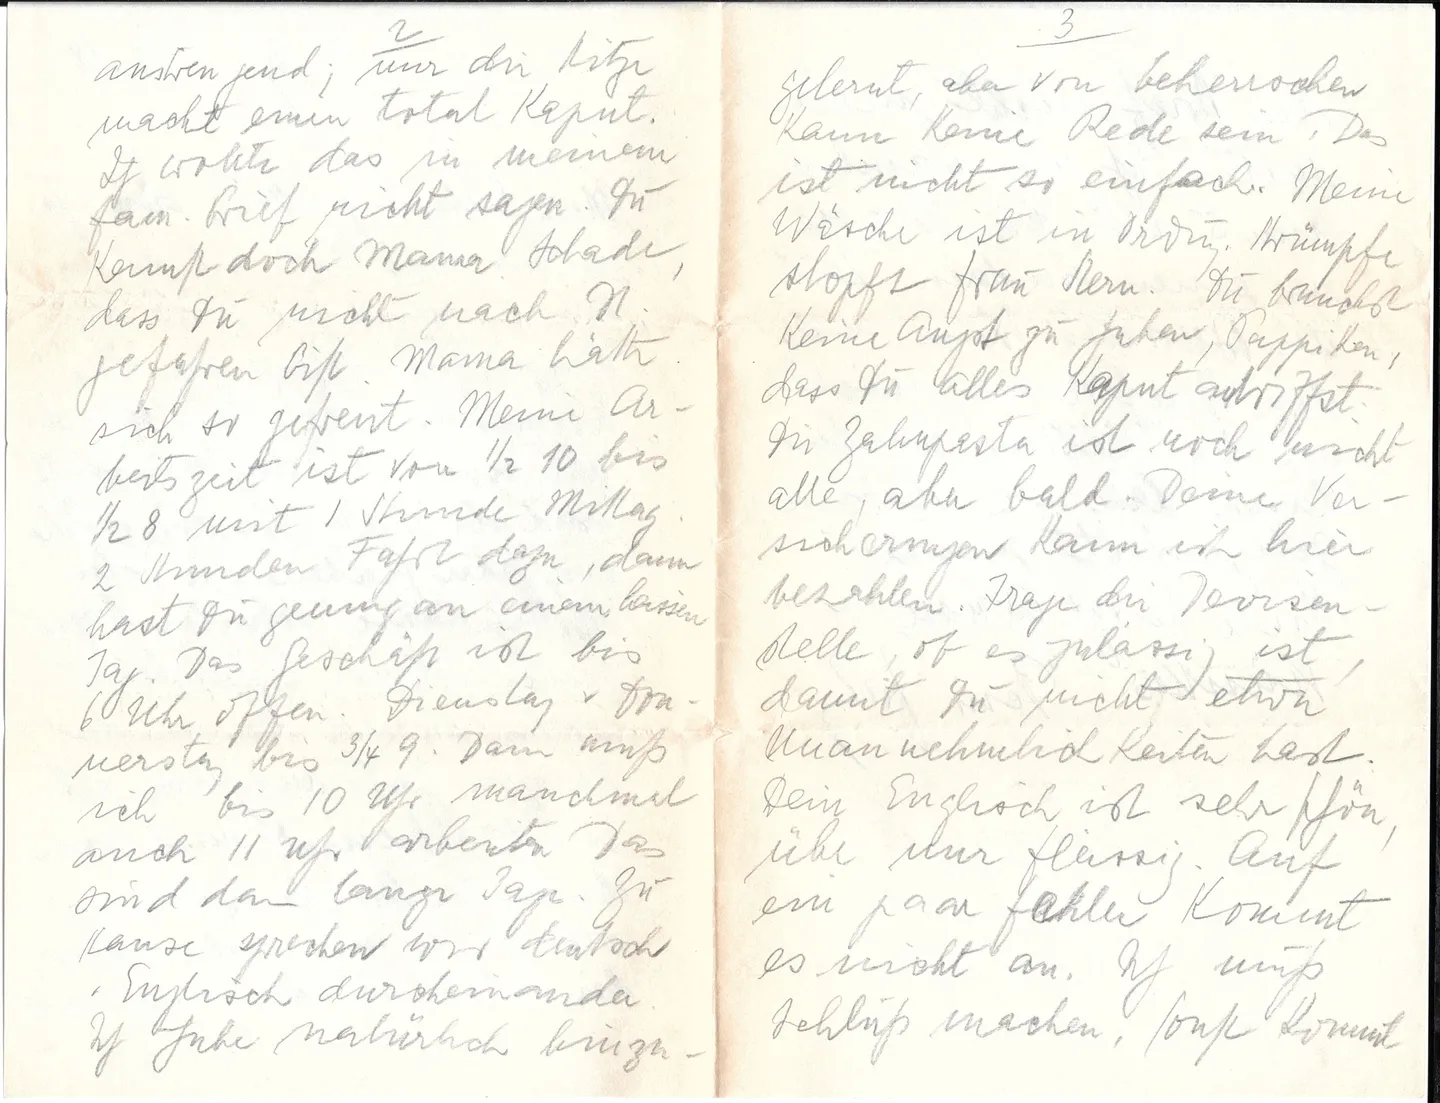 2
anstrengend; nur die Hitze
macht einen total Kaput.
Ich wollte das in meinem
fam. Brief nicht sagen. Du
Kennst doch Mama. Schade,
dass Du nicht nach N.
gefahren bist. Mama hätte
sich so gefreut. Meine Ar-
beitszeit ist von 1/2 10 bis
1/2 8 mit 1 Stunde Mittag.
2 Stunden Fahrt dazu, dann
hast Du genung an einem heissen
Tag. Das Geschäft ist bis
6 Uhr offen. Dienstag + Don-
nerstag bis 3/4 9. Dann muß
ich bis 10 Uhr manchmal
auch 11 Uhr arbeiten. Das
sind dann lange Tage. Zu
Hause sprechen wir deutsch
+ Englisch durcheinander.
Ich habe natürlich hinzu-
3
gelernt, aber von beherrschen
Kann Keine Rede sein. Das
ist nicht so einfach. Meine
Wäsche ist in Ordng. Strümpfe
stopft Frau Stern. Du brauchst
Keine Angst zu haben, Pappiken,
dass Du alles Kaput antriffst.
Die Zahnpasta ist noch nicht
alle, aber bald. Deine Ver-
sicherungen Kann ich hier
bezahlen. Frage die Devisen-
stelle, ob es zulässig ist,
damit Du nicht etwa
Unannehmlichkeiten hast.
Dein Englisch ist sehr schön,
übe nur fleissig. Auf
ein paar fehler Kommt
es nicht an. Ich muß
Schluß machen, sonst Kommt